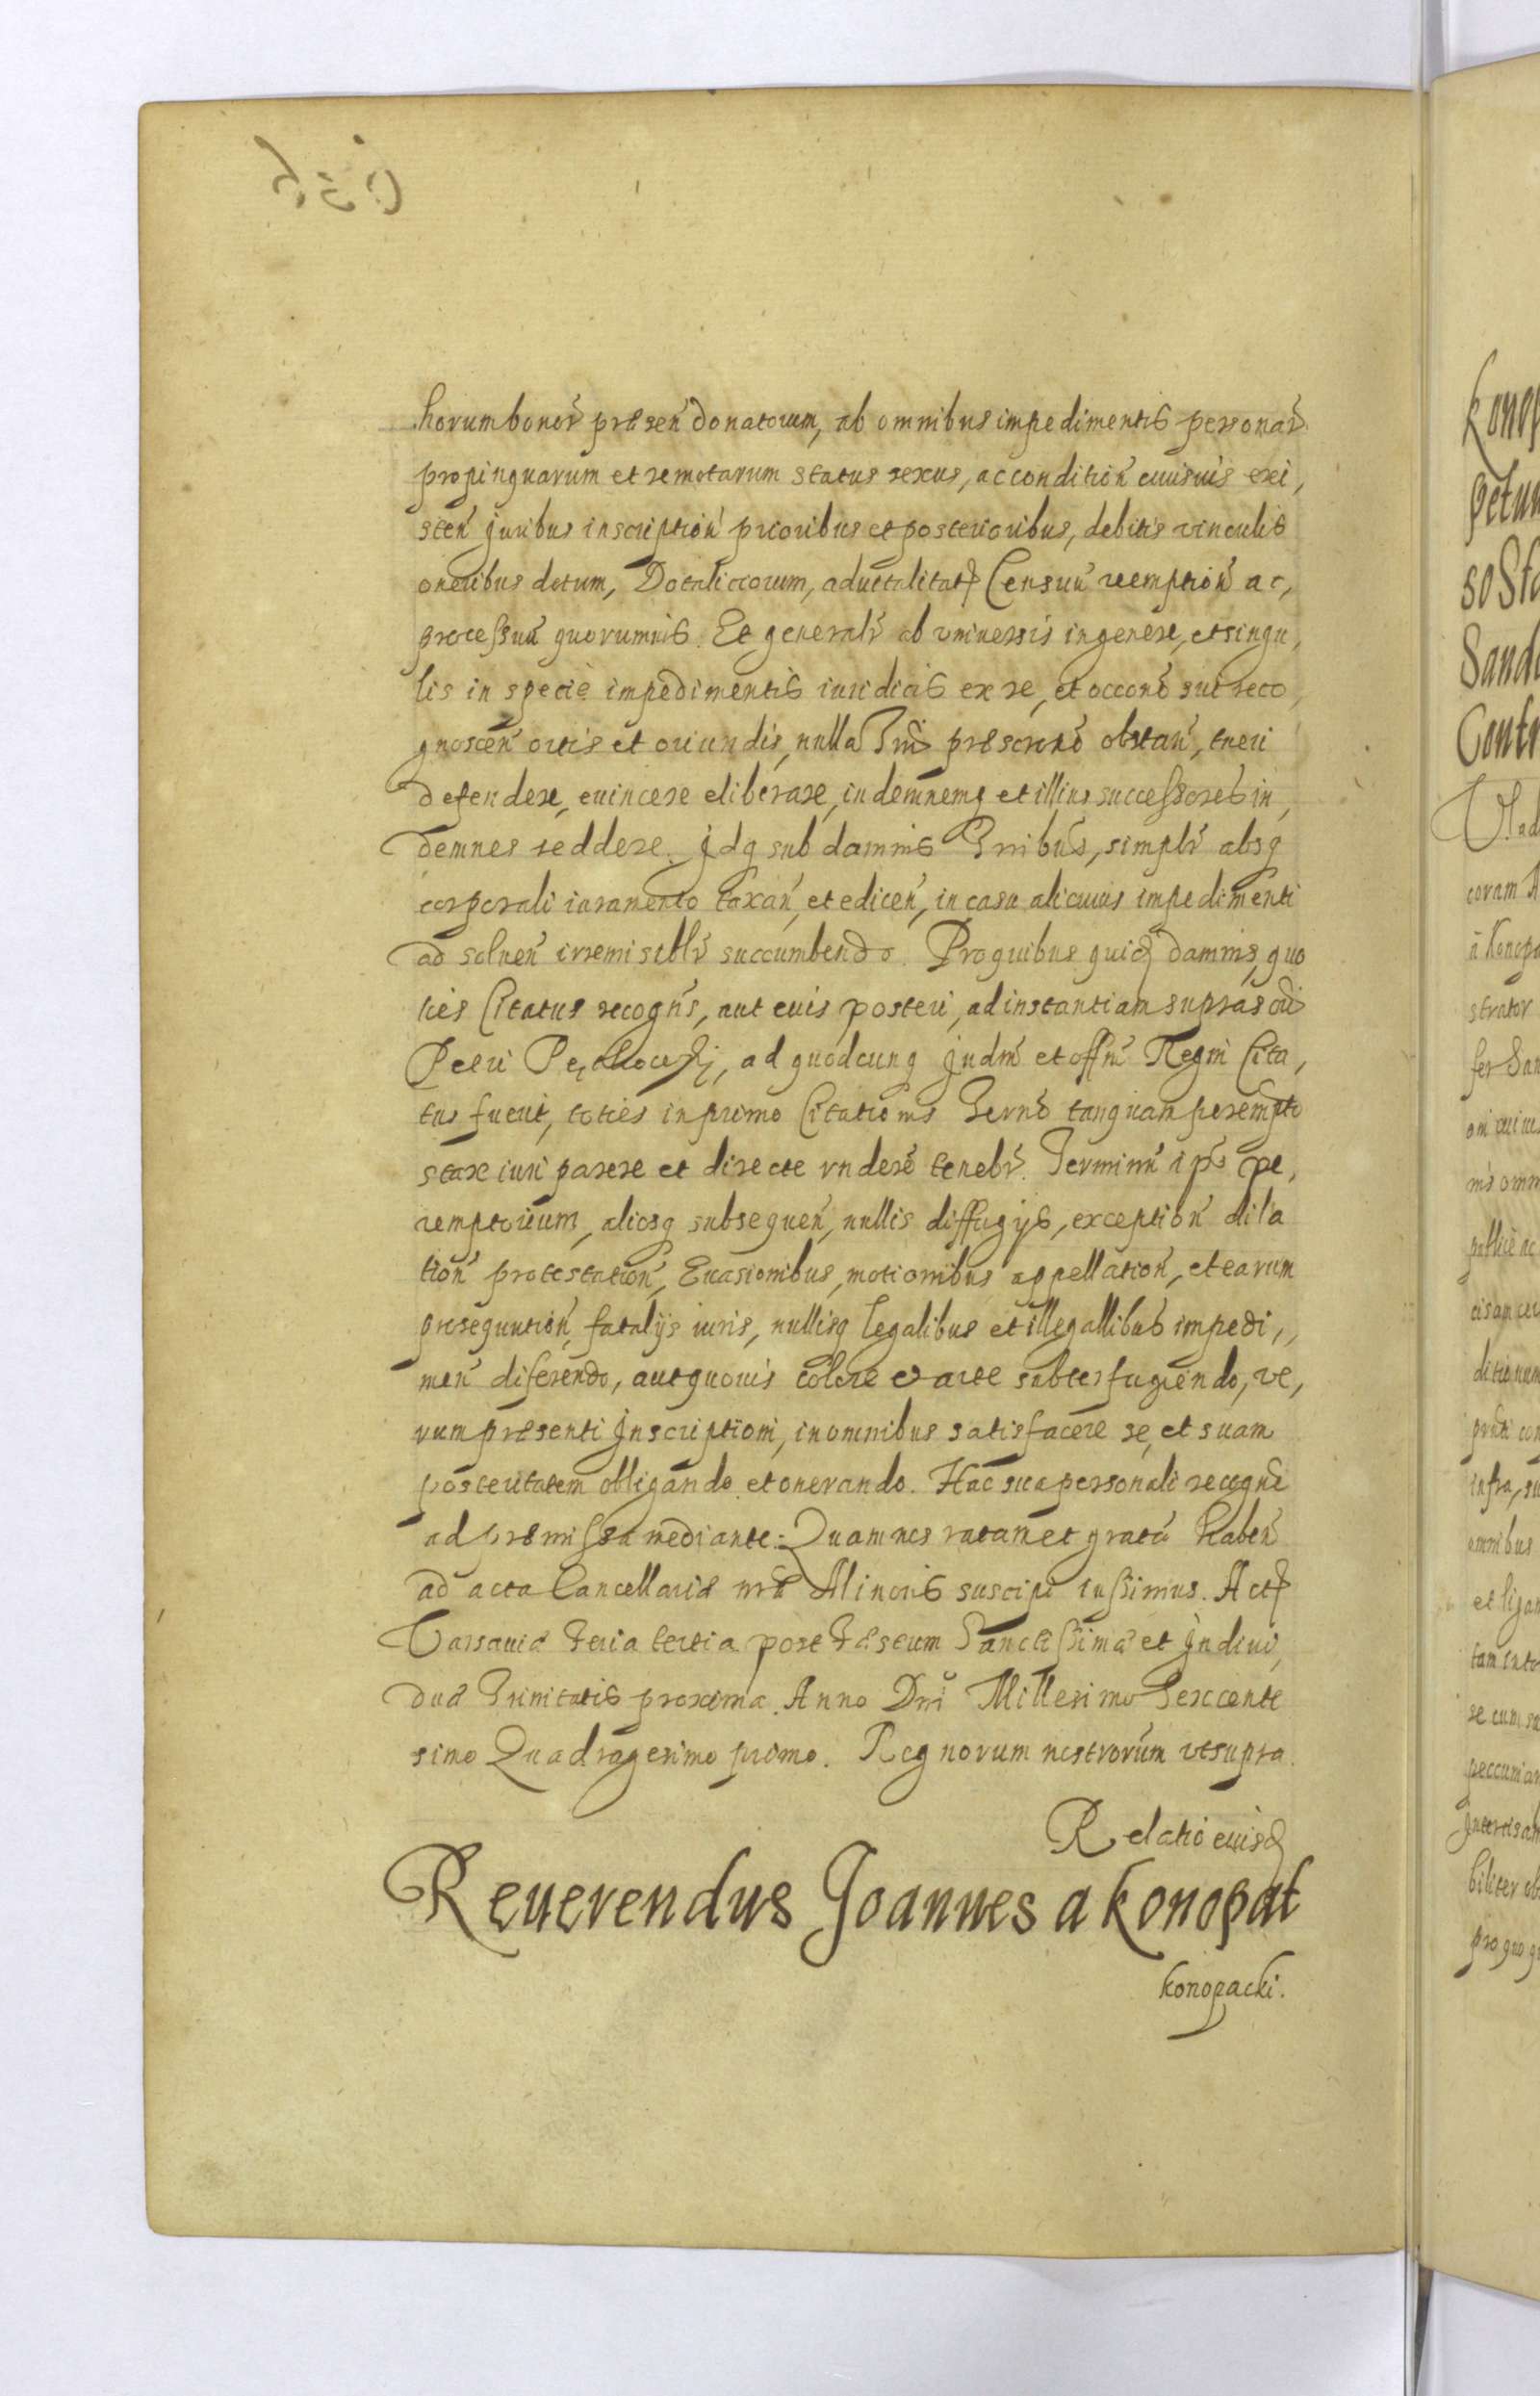 horum bonor̃ præseñ donatorum, ab omnibus impedimentis personar̃
propinquarum et remotarum status sexus, ac condition̄ cuiusuis exi,
steñ juribus inscriptioñ prioribus et posterioribus, debitis vinculis
oneribus dotum, Dotaliciorum, aduitalitat Censuũ reemptioñ ac,
processuũ quorumuis. Et generalr̃ ab vniuersis in genere, et singu,
lis in specie impedimentis iuridicis ex re, et occone sui reco,
gnosceñ ortis et oriundis, nulla præscrne obstañ, tueri
defendere, euincere eliberare, indemnemq et illius successores in,
demnes reddere. Jdq sub damnis simplr̃ absq
corporali iuramento taxañ, et ediceñ, in casu alicuius impedimenti
ad solueñ irremisiblr̃ succumbendo. Pro quibus quid damnis, quo
ties Citatus recogñs, aut euis posteri, ad instantiam suprascri
Petri ad quodcunq Judm̃ et offm̃ Regni Cita,
tus fuerit, toties in primo Citationis Termõ tanquam perempto
stare iuri parere et directe rñdere tenebr̃. Terminũ ips pe,
remptorium, aliosq subsequeñ, nullis diffugijs, exceptioñ dila
tioñ protestatioñ, Euasionibus, motionibus appellatioñ, et earum
prosequutioñ, fatalijs iuris, nullisq legalibus et illegallibus impedi,,
meñ diferendo, aut quouis colore et arte subterfugiendo, ve,
rum præsenti Jnscriptioni, in omnibus satisfacere se, et suam
posteritatem obligando et onerando. Hac sua personali recogne
ad præmissa mediante. Quam nos ratam et gratã habeñ
ad acta Cancellariæ nræ Minoris suscipi iussimus. Act
Varsauiæ feria tertia post Festum Sanctissimæ et Jndiui,
duæ Trinitatis proxima. Anno Dni Millesimo Sexcente
simo Quadragesimo primo. Regnorum nostrorum vt supra.
Relatio euisd
Reuerendus Joannes a Konopat
Konopacki.